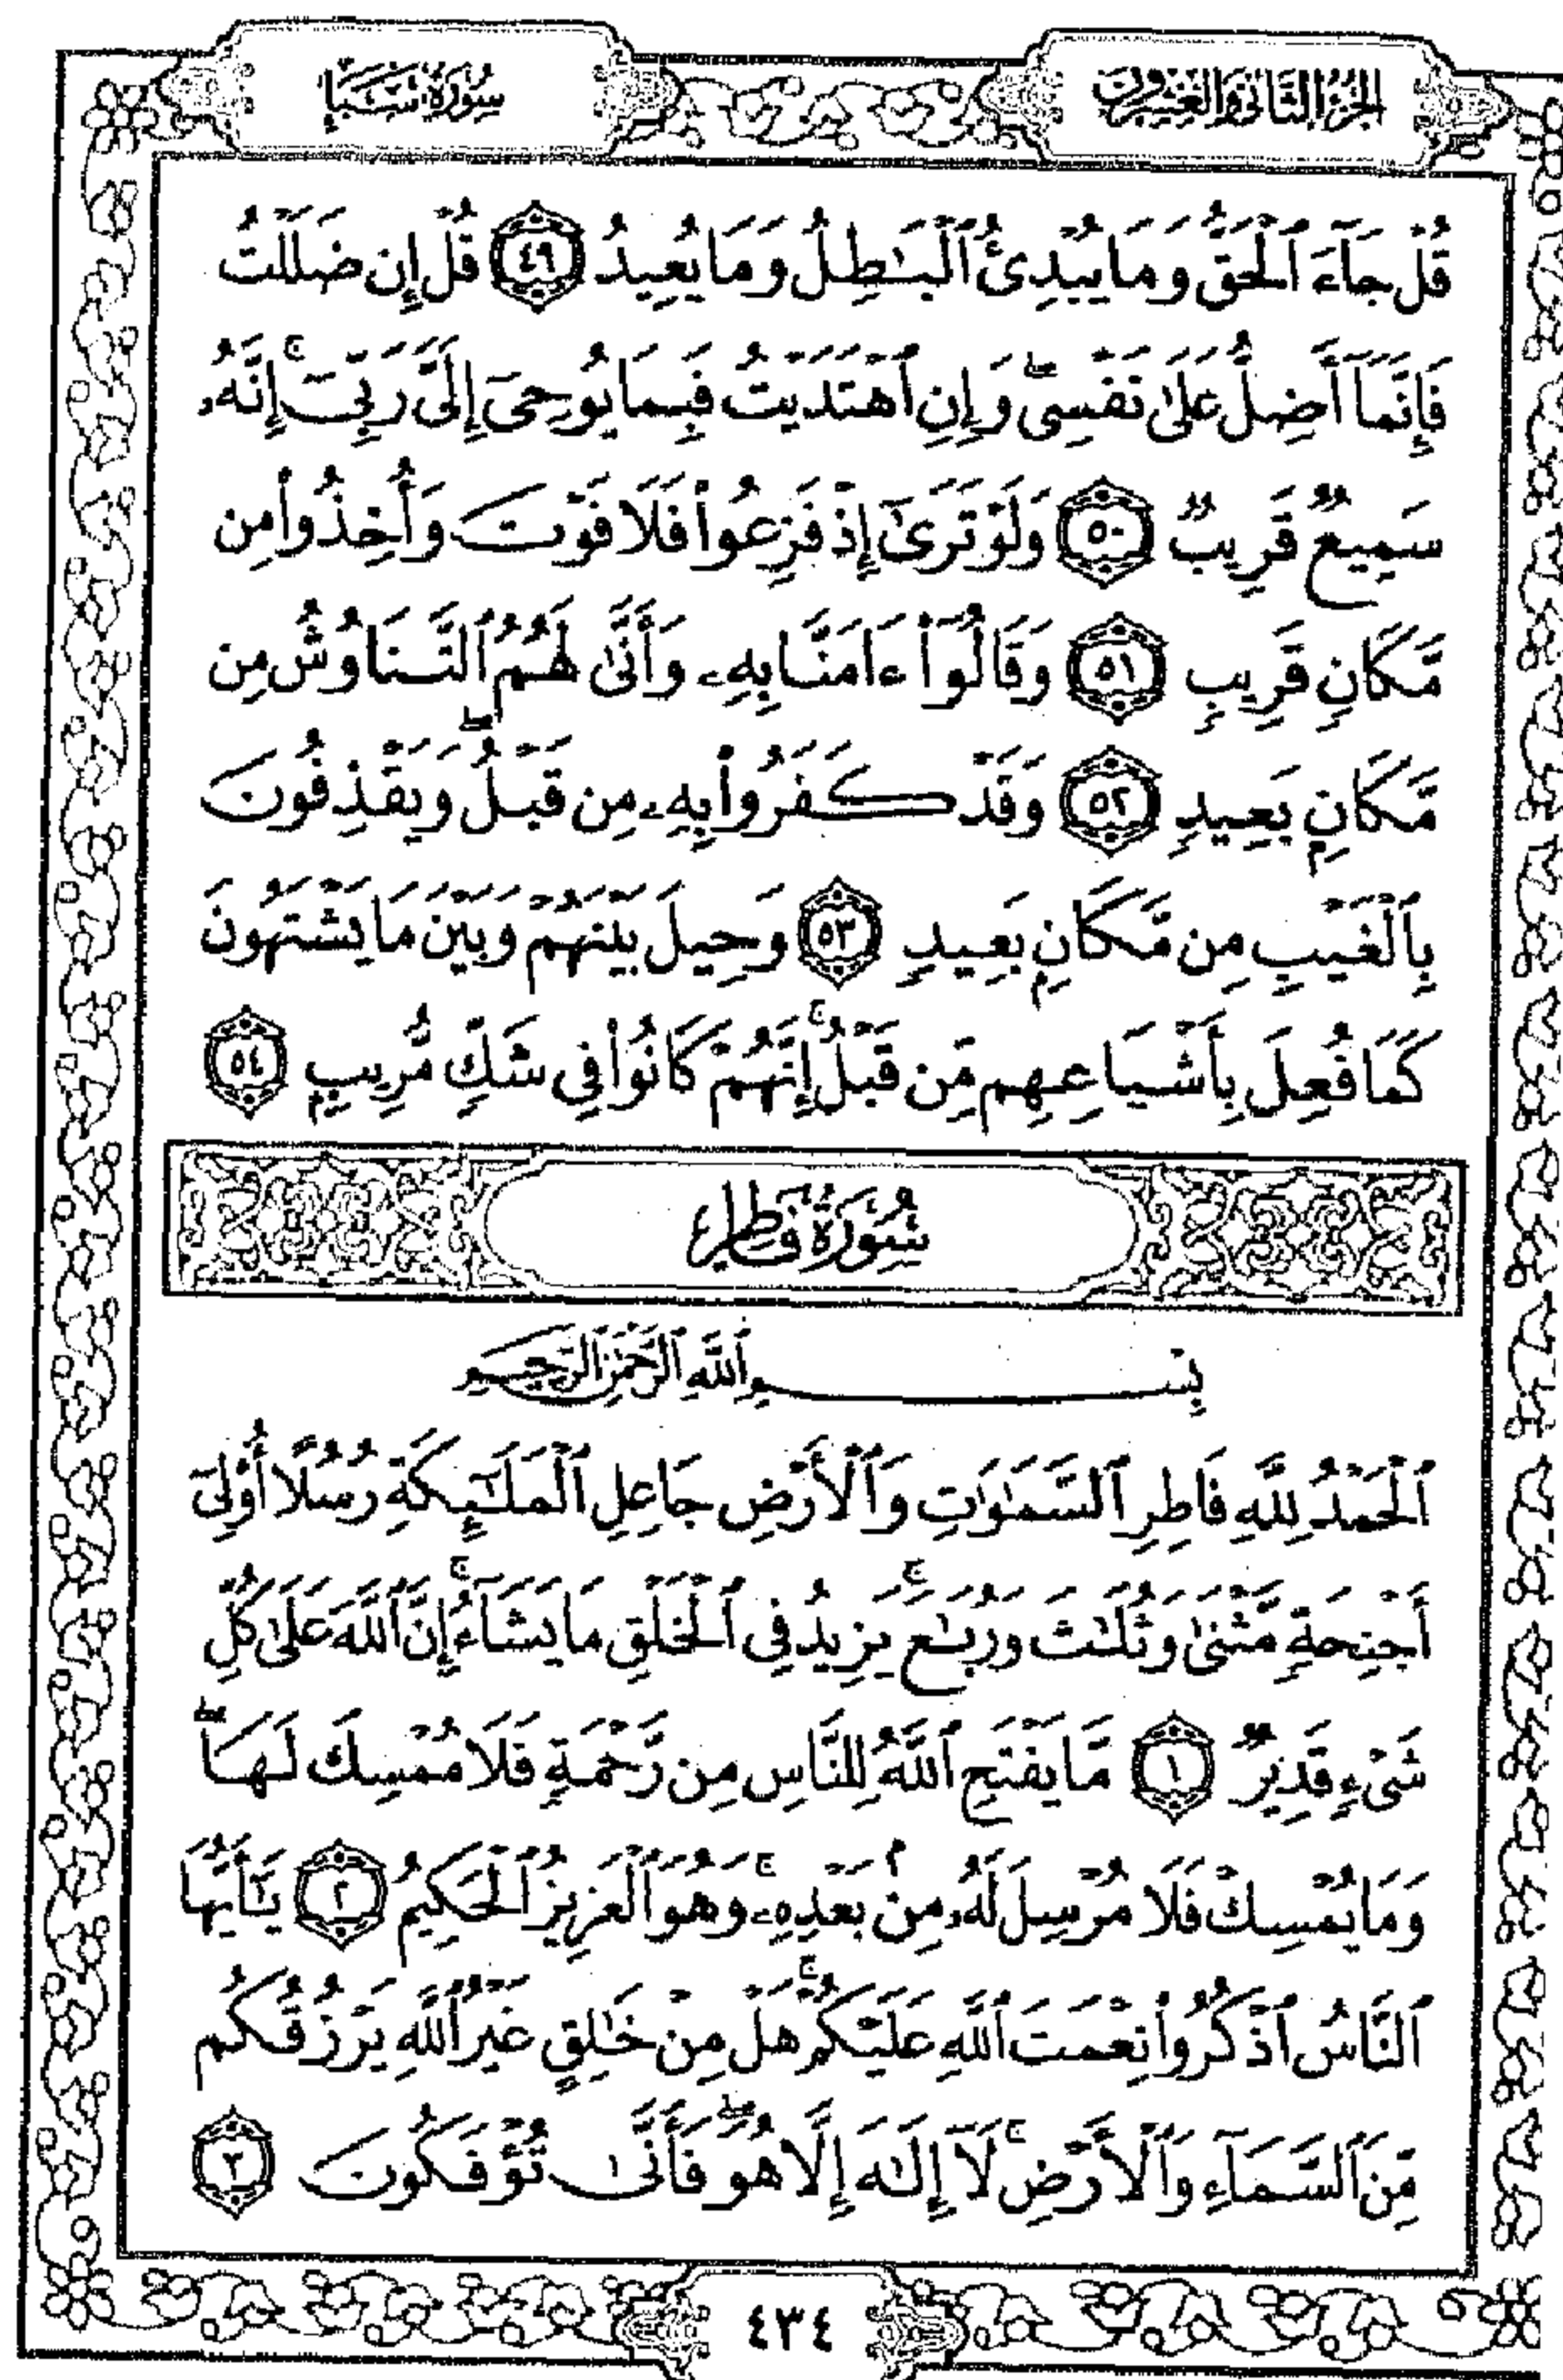 الجزء الثاني والعشرون
سورة سبإ
قُلْ جَآءَ ٱلْحَقُّ وَمَا يُبْدِئُ ٱلْبَـٰطِلُ وَمَا يُعِيدُ ٤٩ قُلْ إِن ضَلَلْتُ
فَإِنَّمَآ أَضِلُّ عَلَىٰ نَفْسِى ۖ وَإِنِ ٱهْتَدَيْتُ فَبِمَا يُوحِىٓ إِلَىَّ رَبِّىٓ ۚ إِنَّهُۥ
سَمِيعٌ قَرِيبٌ ٥٠ وَلَوْ تَرَىٰٓ إِذْ فَزِعُوا۟ فَلَا فَوْتَ وَأُخِذُوا۟ مِن
مَّكَانٍ قَرِيبٍ ٥١ وَقَالُوٓا۟ ءَامَنَّا بِهِۦ وَأَنَّىٰ لَهُمُ ٱلتَّنَاوُشُ مِن
مَّكَانٍۭ بَعِيدٍ ٥٢ وَقَدْ كَفَرُوا۟ بِهِۦ مِن قَبْلُ ۖ وَيَقْذِفُونَ
بِٱلْغَيْبِ مِن مَّكَانٍۭ بَعِيدٍ ٥٣ وَحِيلَ بَيْنَهُمْ وَبَيْنَ مَا يَشْتَهُونَ
كَمَا فُعِلَ بِأَشْيَاعِهِم مِّن قَبْلُ ۚ إِنَّهُمْ كَانُوا۟ فِى شَكٍّ مُّرِيبٍۭ ٥٤
سورة فاطر
بِسْمِ ٱللَّهِ ٱلرَّحْمَـٰنِ ٱلرَّحِيمِ
ٱلْحَمْدُ لِلَّهِ فَاطِرِ ٱلسَّمَـٰوَٰتِ وَٱلْأَرْضِ جَاعِلِ ٱلْمَلَـٰٓئِكَةِ رُسُلًا أُو۟لِىٓ
أَجْنِحَةٍ مَّثْنَىٰ وَثُلَـٰثَ وَرُبَـٰعَ ۚ يَزِيدُ فِى ٱلْخَلْقِ مَا يَشَآءُ ۚ إِنَّ ٱللَّهَ عَلَىٰ كُلِّ
شَىْءٍ قَدِيرٌ ١ مَّا يَفْتَحِ ٱللَّهُ لِلنَّاسِ مِن رَّحْمَةٍ فَلَا مُمْسِكَ لَهَا ۖ
وَمَا يُمْسِكْ فَلَا مُرْسِلَ لَهُۥ مِنۢ بَعْدِهِۦ ۚ وَهُوَ ٱلْعَزِيزُ ٱلْحَكِيمُ ٢ يَـٰٓأَيُّهَا
ٱلنَّاسُ ٱذْكُرُوا۟ نِعْمَتَ ٱللَّهِ عَلَيْكُمْ ۚ هَلْ مِنْ خَـٰلِقٍ غَيْرُ ٱللَّهِ يَرْزُقُكُم
مِّنَ ٱلسَّمَآءِ وَٱلْأَرْضِ ۚ لَآ إِلَـٰهَ إِلَّا هُوَ ۖ فَأَنَّىٰ تُؤْفَكُونَ ٣
٤٣٤